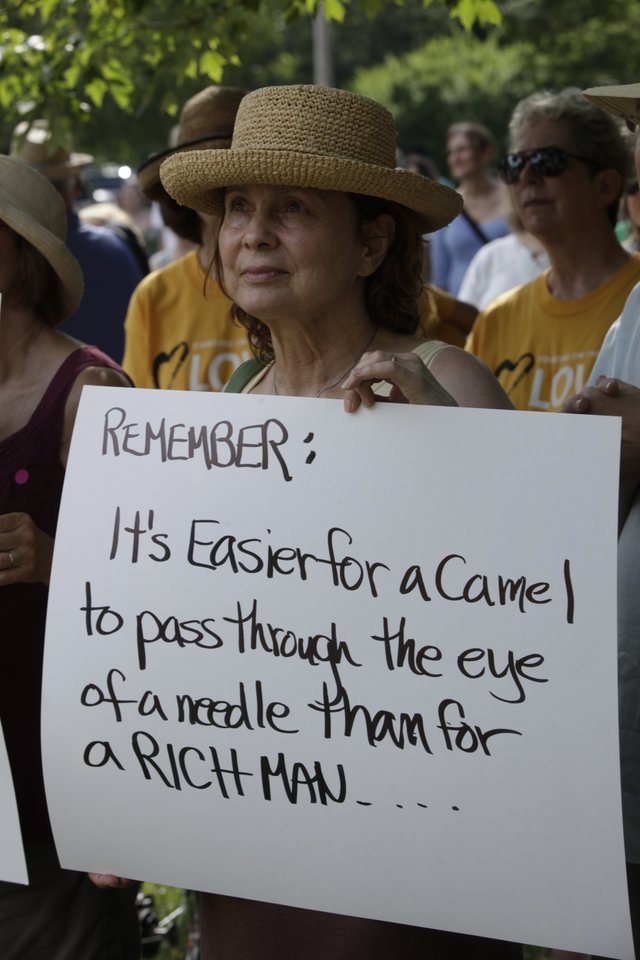 REMEMBER:
It's Easier for a Camel
to pass through the eye
of a needle than for
a RICH MAN.....
LO
LOV